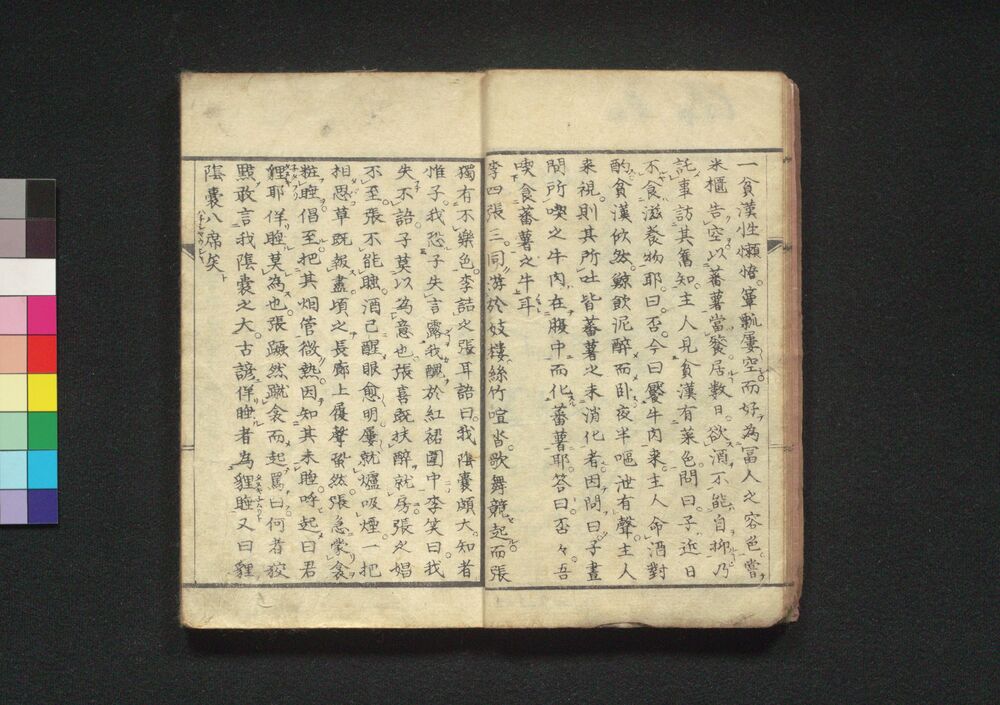 一貧漢性懶惰。箪瓢屢空而好為冨人之容色。嘗
米櫃告空以蕃薯當飱居數日。欲酒不能自抑乃
託事訪其舊知主人見貧漢有菜色問曰子近日
不食滋養物耶曰。否。今日饜牛肉来。主人命酒對
酌貧漢俽然鯨飲泥醉而卧夜半嘔泄有聲主人
来視則其所吐皆蕃薯之未消化者因問曰子晝
間所喫之牛肉在腹中而化蕃薯耶答曰。否々。吾
喫食蕃薯之牛耳
李四張三。同游於妓樓絲竹喧沓。歌舞競起而張
獨有不樂色李詰之張耳語曰我陰囊頗大。知者
惟子我恐子失言露我醜於紅裙圍中李笑曰。我
失不語子莫以為意也張喜既扶醉就房張之娼
不至張不能睡酒已醒眼愈明屢就爐吸煙一把
相思草既報盡頃之長廊上履聲跫然張急蒙衾
粧睡倡至把其烟管微熱因知其未睡呼起曰君
貍耶佯睡莫為也張蹶然蹴衾而起罵曰何者狡
黠敢言我陰囊之大。古諺佯睡者為貍睡又曰貍
陰囊八席矣